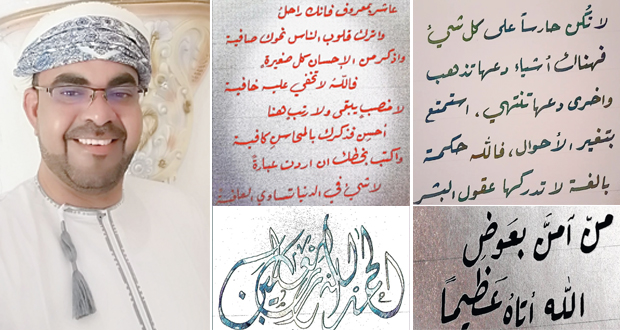 عاشر بمعروف فانك راحل
واترك قلوب الناس نحوك صافية
واذكر من الإحسان كل صغيرة
فالله لا تخفي عليه خافية
لا منصب يبقى ولا رتب هنا
أحسن فذكرك بالمحاسن كافية
واكتب بخطك ان اردت عبارة
لا شيء في الدنيا تساوي العافية
لا تكن حارساً على كل شيء
فهناك أشياء دعها تذهب
واخرى دعها تنتهي، استمتع
بتغير الأحوال، فالله حكمة
بالغة لا تدركها عقول البشر
الحمد لله رب العالمين
منّ آمنَ بعَوضِ
الله أتاهُ عَظِيماً